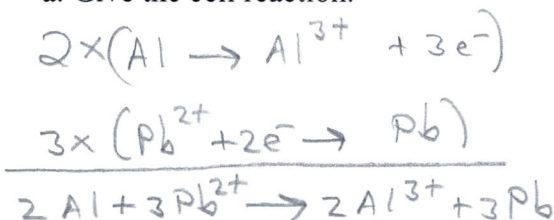 a. Give the cell reaction.
2×(Al → Al³⁺ + 3e⁻)
3× (Pb²⁺ + 2e⁻ → Pb)
2 Al + 3 Pb²⁺ → 2 Al³⁺ + 3 Pb